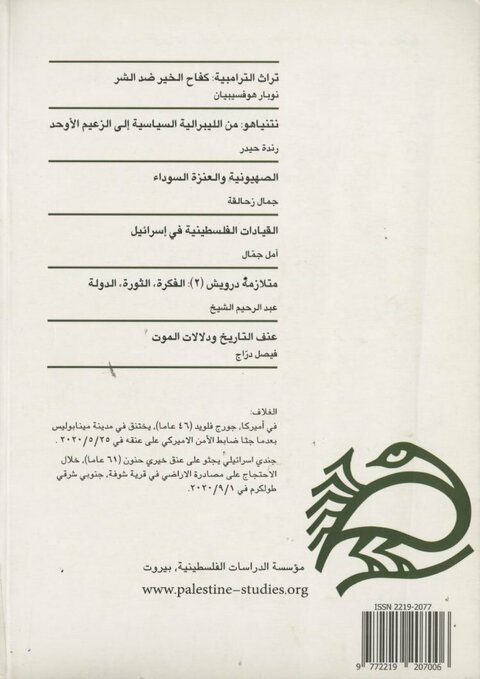 تراث الترامبية: كفاح الخير ضد الشر
نوبار هوفسيبيان
نتنياهو: من الليبرالية السياسية إلى الزعيم الأوحد
رندة حيدر
الصهيونية والعنزة السوداء
جمال زحالقة
القيادات الفلسطينية في إسرائيل
أمل جمّال
متلازمة درويش (٢): الفكرة، الثورة، الدولة
عبد الرحيم الشيخ
عنف التاريخ ودلالات الموت
فيصل درّاج
الغلاف:
في أميركا، جورج فلويد (٤٦ عاما)، يختنق في مدينة مينابوليس
بعدما جثا ضابط الأمن الاميركي على عنقه في ٢٠٢٠/٥/٢٥.
جندي اسرائيلي يجثو على عنق خيري حنون (٦١ عاما)، خلال
الاحتجاج على مصادرة الاراضي في قرية شوفة، جنوبي شرقي
طولكرم في ٢٠٢٠/٩/١.
مؤسسة الدراسات الفلسطينية، بيروت
www.palestine-studies.org
ISSN 2219-2077
9 772219 207006